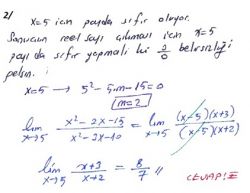 2) x=5 için payda sıfır oluyor.
Sonucun reel sayı çıkması için x=5
payı da sıfır yapmalı ki 0/0 belirsizliği
gelsin.
x=5 → 5² - 5m - 15 = 0
m=2
lim x→5 (x² - 2x - 15)/(x² - 3x - 10) = lim x→5 (x-5)(x+3)/(x-5)(x+2)
lim x→5 (x+3)/(x+2) = 8/7 //
CEVAP: E